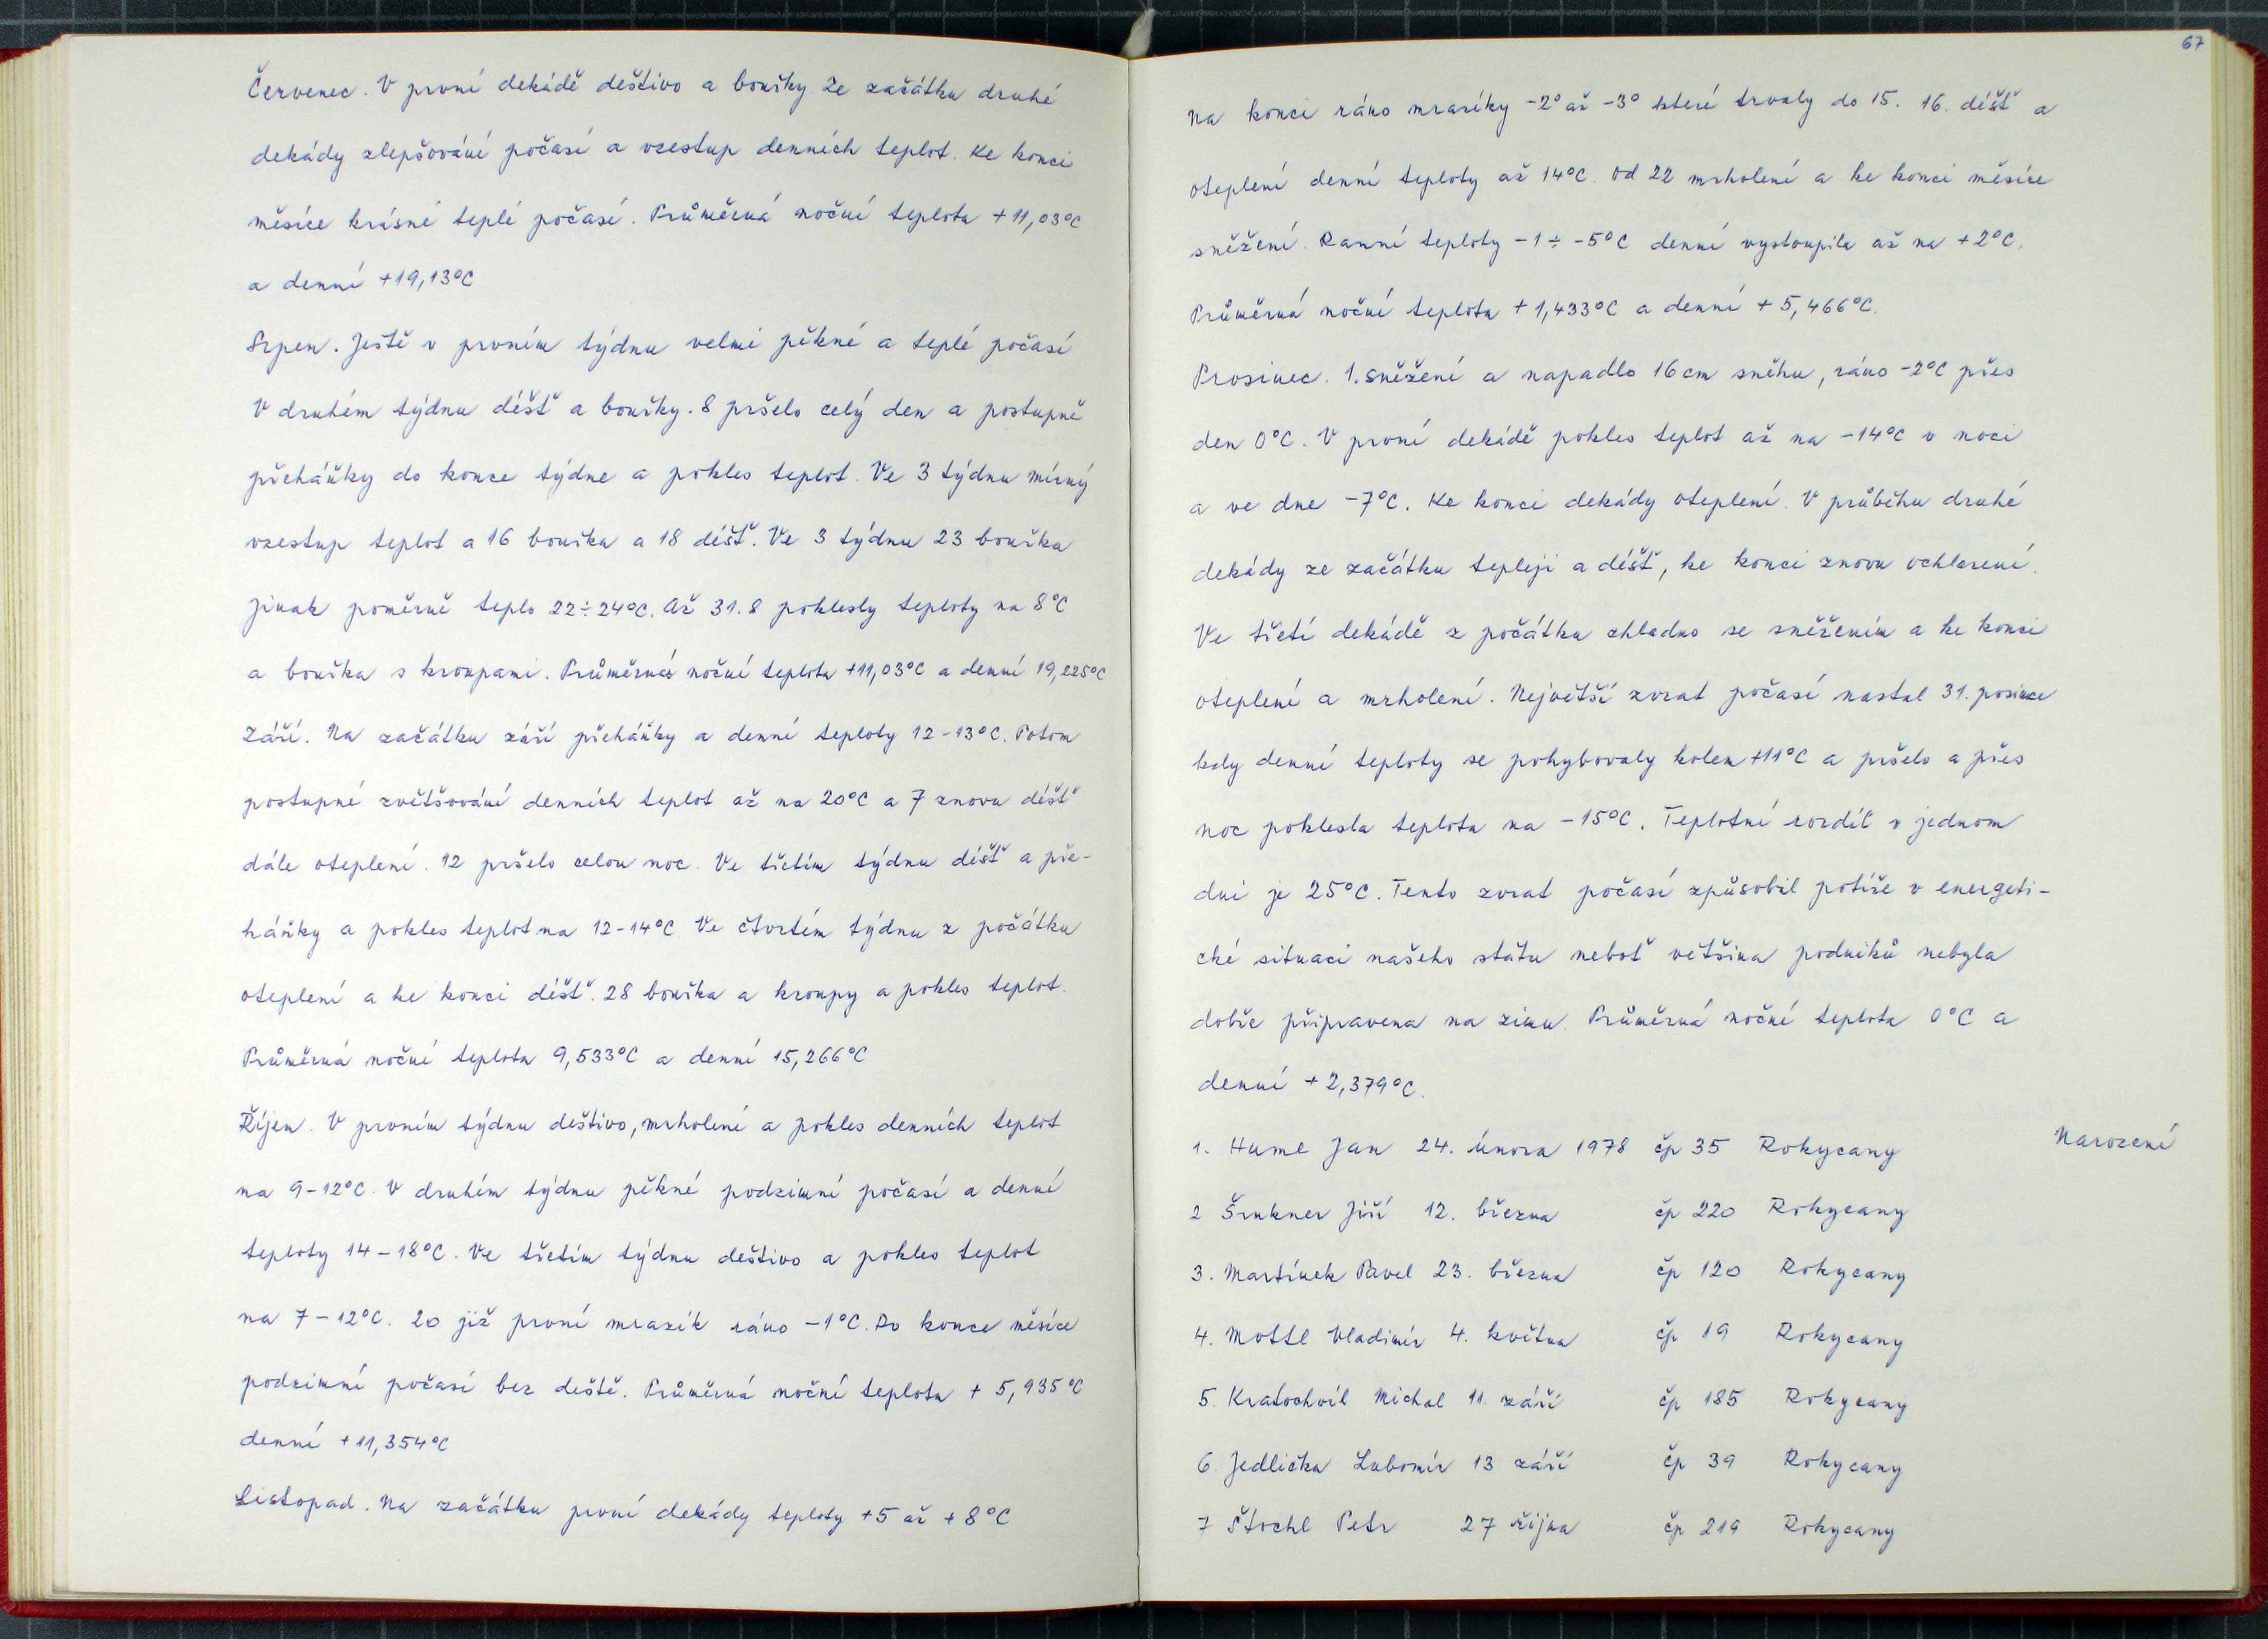 Červenec. V první dekádě deštivo a bouřky Ze začátku druhé
dekády zlepšování počasí a vzestup denních teplot. Ke konci
měsíce krásné teplé počasí. Průměrná noční teplota +11,03°C
a denní +19,13°C
Srpen. Ještě v prvním týdnu velmi pěkné a teplé počasí
V druhém týdnu déšť a bouřky. 8 pršelo celý den a postupně
přeháňky do konce týdne a pokles teplot. Ve 3 týdnu mírný
vzestup teplot a 16 bouřka a 18 déšť. Ve 3 týdnu 23 bouřka
jinak poměrně teplo 22÷24°C. Až 31.8 poklesly teploty na 8°C
a bouřka s kroupami. Průměrná noční teplota +11,03°C a denní 19,225°C
Září. Na začátku září přeháňky a denní teploty 12-13°C. Potom
postupné zvětšování denních teplot až na 20°C a 7 znovu déšť
dále oteplení. 12 pršelo celou noc. Ve třetím týdnu déšť a pře-
háňky a pokles teplot na 12-14°C Ve čtvrtém týdnu z počátku
oteplení a ke konci déšť. 28 bouřka a kroupy a pokles teplot.
Průměrná noční teplota 9,533°C a denní 15,266°C
Říjen. V prvním týdnu deštivo, mrholení a pokles denních teplot
na 9-12°C. V druhém týdnu pěkné podzimní počasí a denní
teploty 14-18°C. Ve třetím týdnu deštivo a pokles teplot
na 7-12°C. 20 již první mrazík ráno -1°C. Do konce měsíce
podzimní počasí bez deště. Průměrná noční teplota + 5,935°C
denní +11,354°C
Listopad. Na začátku první dekády teploty +5 až +8°C
67
Na konci ráno mrazíky -2° až -3° které trvaly do 15. 16. déšť a
oteplení denní teploty až 14°C. Od 22 mrholení a ke konci měsíce
sněžení. Ranní teploty -1÷ -5°C denní vystoupila až na +2°C.
Průměrná noční teplota +1,433°C a denní +5,466°C.
Prosinec. 1. sněžení a napadlo 16cm sněhu, ráno -2°C přes
den 0°C. V první dekádě pokles teplot až na -14°C v noci
a ve dne -7°C. Ke konci dekády oteplení. V průběhu druhé
dekády ze začátku tepleji a déšť, ke konci znovu ochlazení.
Ve třetí dekádě z počátku chladno se sněžením a ke konci
oteplení a mrholení. Největší zvrat počasí nastal 31. posince
kdy denní teploty se pohybovaly kolem +11°C a pršelo a přes
noc poklesla teplota na -15°C. Teplotní rozdíl v jednom
dni je 25°C. Tento zvrat počasí způsobil potíže v energeti-
cké situaci našeho státu neboť většina podniků nebyla
dobře připravena na zimu. Průměrná noční teplota 0°C a
denní +2,379°C.
Narození
1. Huml Jan 24. února 1978 čp 35 Rokycany
2 Šrukner Jiří 12. března čp 220 Rokycany
3. Martínek Pavel 23. března čp 120 Rokycany
4. Mottl Vladimír 4. května čp 19 Rokycany
5. Kratochvíl Michal 11. září čp 185 Rokycany
6. Jedlička Lubomír 13 září čp 39 Rokycany
7 Štochl Petr 27 října čp 219 Rokycany